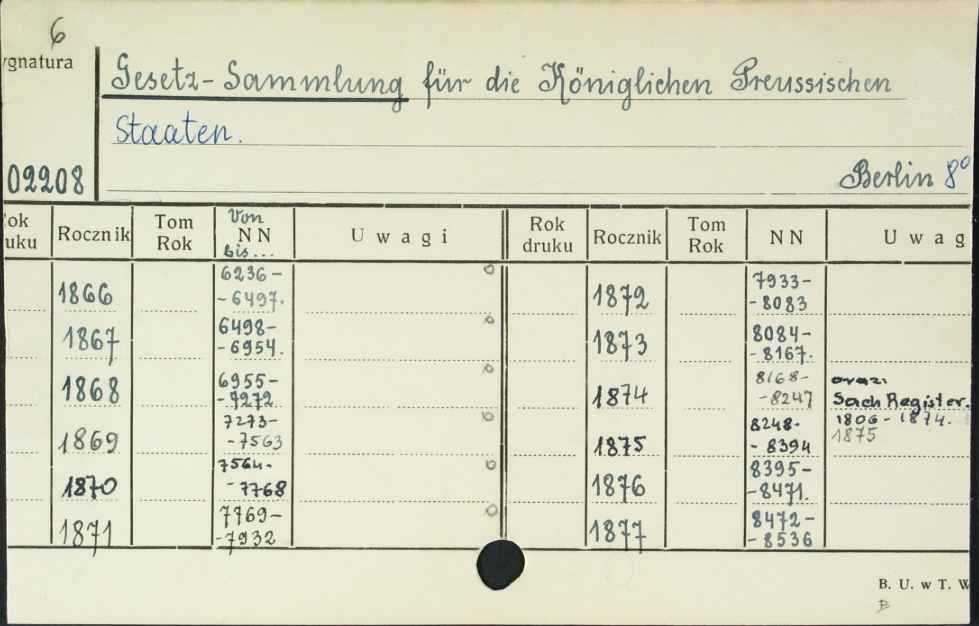 6
ygnatura
Gesetz-Sammlung für die Königlichen Preussischen
Staaten.
02208
Berlin 8°
ok
uku
Rocznik
Tom
Rok
Von
NN
bis...
Uwagi
Rok
druku
Rocznik
Tom
Rok
NN
Uwag
1866
6236-
-6497.
1867
6498-
-6954.
1868
6955-
-7272
1869
7273-
-7563
1870
7564-
-7768
1871
7769-
-7932
1872
7933-
-8083
1873
8084-
-8167.
1874
8168-
-8247
oraz:
Sach Register.
1806-1874.
1875
8248-
-8394
1875
1876
8395-
-8471.
1877
8472-
-8536
B. U. w T. W
B